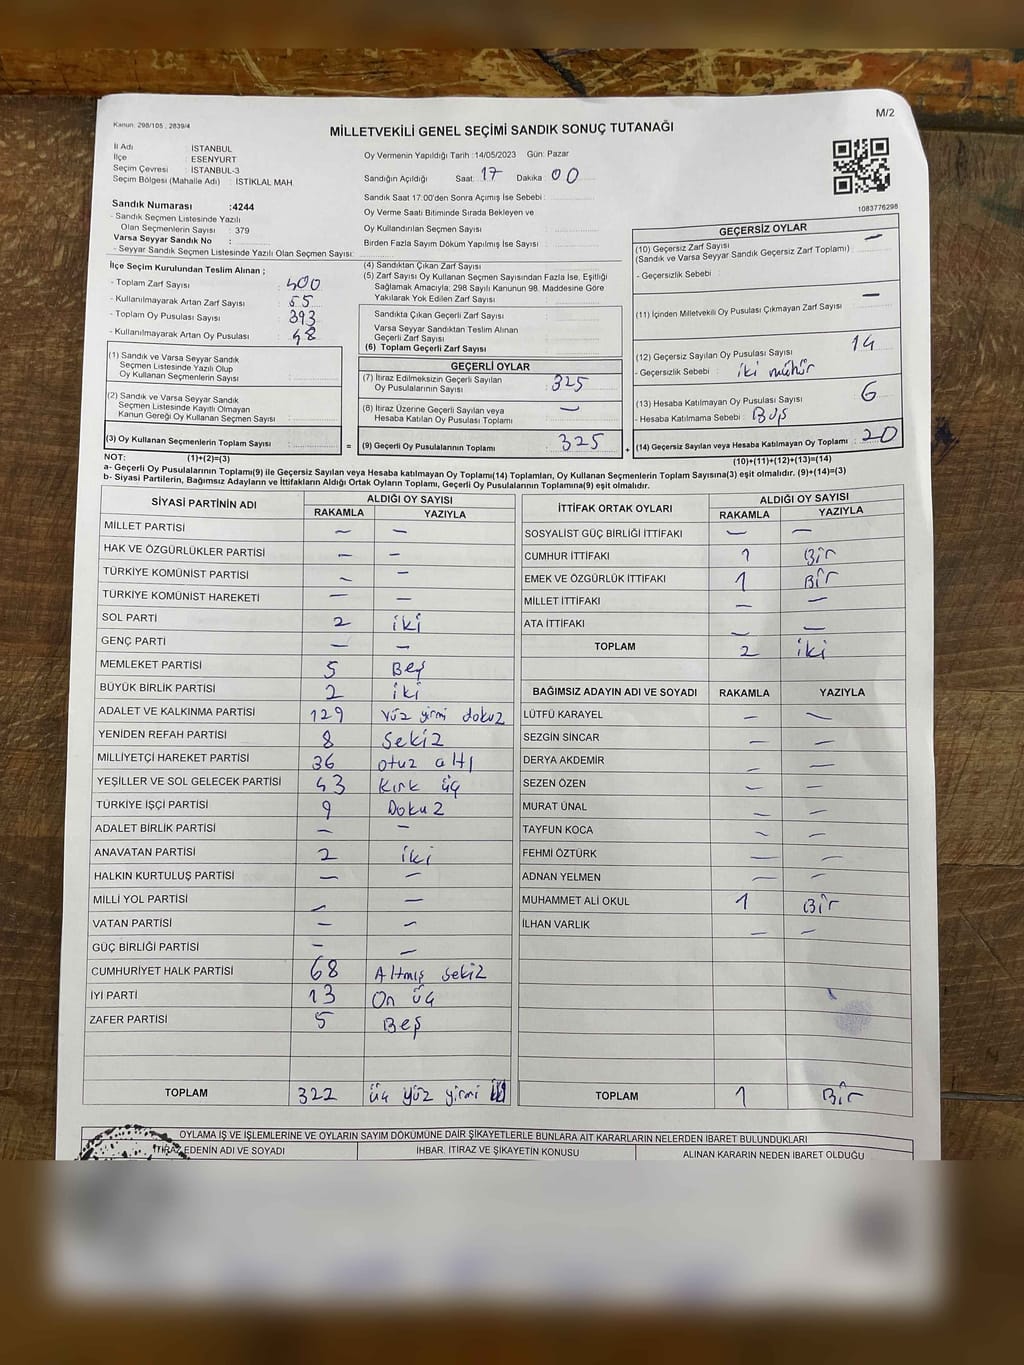 Kanun. 298/105 , 2839/4
M/2
MİLLETVEKİLİ GENEL SEÇİMİ SANDIK SONUÇ TUTANAĞI
İl Adı : İSTANBUL
İlçe : ESENYURT
Seçim Çevresi : İSTANBUL-3
Seçim Bölgesi (Mahalle Adı) : İSTİKLAL MAH.
Sandık Numarası :4244
- Sandık Seçmen Listesinde Yazılı
Olan Seçmenlerin Sayısı : 379
Varsa Seyyar Sandık No :
- Seyyar Sandık Seçmen Listesinde Yazılı Olan Seçmen Sayısı:
Oy Vermenin Yapıldığı Tarih :14/05/2023 Gün: Pazar
Sandığın Açıldığı Saat: 17 Dakika : 00
Sandık Saat 17:00'den Sonra Açılmış İse Sebebi :
Oy Verme Saati Bitiminde Sırada Bekleyen ve
Oy Kullandırılan Seçmen Sayısı :
Birden Fazla Sayım Döküm Yapılmış İse Sayısı :
1083776298
İlçe Seçim Kurulundan Teslim Alınan ;
- Toplam Zarf Sayısı : 400
- Kullanılmayarak Artan Zarf Sayısı : 55
- Toplam Oy Pusulası Sayısı : 393
- Kullanılmayarak Artan Oy Pusulası : 48
(1) Sandık ve Varsa Seyyar Sandık
Seçmen Listesinde Yazılı Olup
Oy Kullanan Seçmenlerin Sayısı :
(2) Sandık ve Varsa Seyyar Sandık
Seçmen Listesinde Kayıtlı Olmayan
Kanun Gereği Oy Kullanan Seçmen Sayısı :
(3) Oy Kullanan Seçmenlerin Toplam Sayısı : =
(4) Sandıktan Çıkan Zarf Sayısı :
(5) Zarf Sayısı Oy Kullanan Seçmen Sayısından Fazla İse, Eşitliği
Sağlamak Amacıyla; 298 Sayılı Kanunun 98. Maddesine Göre
Yakılarak Yok Edilen Zarf Sayısı :
Sandıkta Çıkan Geçerli Zarf Sayısı :
Varsa Seyyar Sandıktan Teslim Alınan
Geçerli Zarf Sayısı :
(6) Toplam Geçerli Zarf Sayısı :
GEÇERLİ OYLAR
(7) İtiraz Edilmeksizin Geçerli Sayılan
Oy Pusulalarının Sayısı : 325
(8) İtiraz Üzerine Geçerli Sayılan veya
Hesaba Katılan Oy Pusulası Toplamı : —
(9) Geçerli Oy Pusulalarının Toplamı : 325 +
GEÇERSİZ OYLAR
(10) Geçersiz Zarf Sayısı : —
(Sandık ve Varsa Seyyar Sandık Geçersiz Zarf Toplamı)
- Geçersizlik Sebebi :
(11) İçinden Milletvekili Oy Pusulası Çıkmayan Zarf Sayısı : —
(12) Geçersiz Sayılan Oy Pusulası Sayısı : 14
- Geçersizlik Sebebi : iki mühür
(13) Hesaba Katılmayan Oy Pusulası Sayısı : 6
- Hesaba Katılmama Sebebi : Boş
(14) Geçersiz Sayılan veya Hesaba Katılmayan Oy Toplamı : 20
NOT: (1)+(2)=(3) (10)+(11)+(12)+(13)=(14)
a- Geçerli Oy Pusulalarının Toplamı(9) ile Geçersiz Sayılan veya Hesaba katılmayan Oy Toplamı(14) Toplamları, Oy Kullanan Seçmenlerin Toplam Sayısına(3) eşit olmalıdır. (9)+(14)=(3)
b- Siyasi Partilerin, Bağımsız Adayların ve İttifakların Aldığı Ortak Oyların Toplamı, Geçerli Oy Pusulalarının Toplamına(9) eşit olmalıdır.
SİYASİ PARTİNİN ADI ALDIĞI OY SAYISI
RAKAMLA YAZIYLA
MİLLET PARTİSİ — —
HAK VE ÖZGÜRLÜKLER PARTİSİ — —
TÜRKİYE KOMÜNİST PARTİSİ — —
TÜRKİYE KOMÜNİST HAREKETİ — —
SOL PARTİ 2 iki
GENÇ PARTİ — —
MEMLEKET PARTİSİ 5 Beş
BÜYÜK BİRLİK PARTİSİ 2 iki
ADALET VE KALKINMA PARTİSİ 129 yüz yirmi dokuz
YENİDEN REFAH PARTİSİ 8 Sekiz
MİLLİYETÇİ HAREKET PARTİSİ 36 otuz altı
YEŞİLLER VE SOL GELECEK PARTİSİ 43 Kırk üç
TÜRKİYE İŞÇİ PARTİSİ 9 Dokuz
ADALET BİRLİK PARTİSİ — —
ANAVATAN PARTİSİ 2 iki
HALKIN KURTULUŞ PARTİSİ — —
MİLLİ YOL PARTİSİ — —
VATAN PARTİSİ — —
GÜÇ BİRLİĞİ PARTİSİ — —
CUMHURİYET HALK PARTİSİ 68 Altmış sekiz
İYİ PARTİ 13 On üç
ZAFER PARTİSİ 5 Beş
TOPLAM 322 üç yüz yirmi
İTTİFAK ORTAK OYLARI ALDIĞI OY SAYISI
RAKAMLA YAZIYLA
SOSYALİST GÜÇ BİRLİĞİ İTTİFAKI — —
CUMHUR İTTİFAKI 1 Bir
EMEK VE ÖZGÜRLÜK İTTİFAKI 1 Bir
MİLLET İTTİFAKI — —
ATA İTTİFAKI — —
TOPLAM 2 iki
BAĞIMSIZ ADAYIN ADI VE SOYADI RAKAMLA YAZIYLA
LÜTFÜ KARAYEL — —
SEZGİN SİNCAR — —
DERYA AKDEMİR — —
SEZEN ÖZEN — —
MURAT ÜNAL — —
TAYFUN KOCA — —
FEHMİ ÖZTÜRK — —
ADNAN YELMEN — —
MUHAMMET ALİ OKUL 1 Bir
İLHAN VARLIK — —
TOPLAM 1 Bir
OYLAMA İŞ VE İŞLEMLERİNE VE OYLARIN SAYIM DÖKÜMÜNE DAİR ŞİKAYETLERLE BUNLARA AİT KARARLARIN NELERDEN İBARET BULUNDUKLARI
İTİRAZ EDENİN ADI VE SOYADI İHBAR, İTİRAZ VE ŞİKAYETİN KONUSU ALINAN KARARIN NEDEN İBARET OLDUĞU